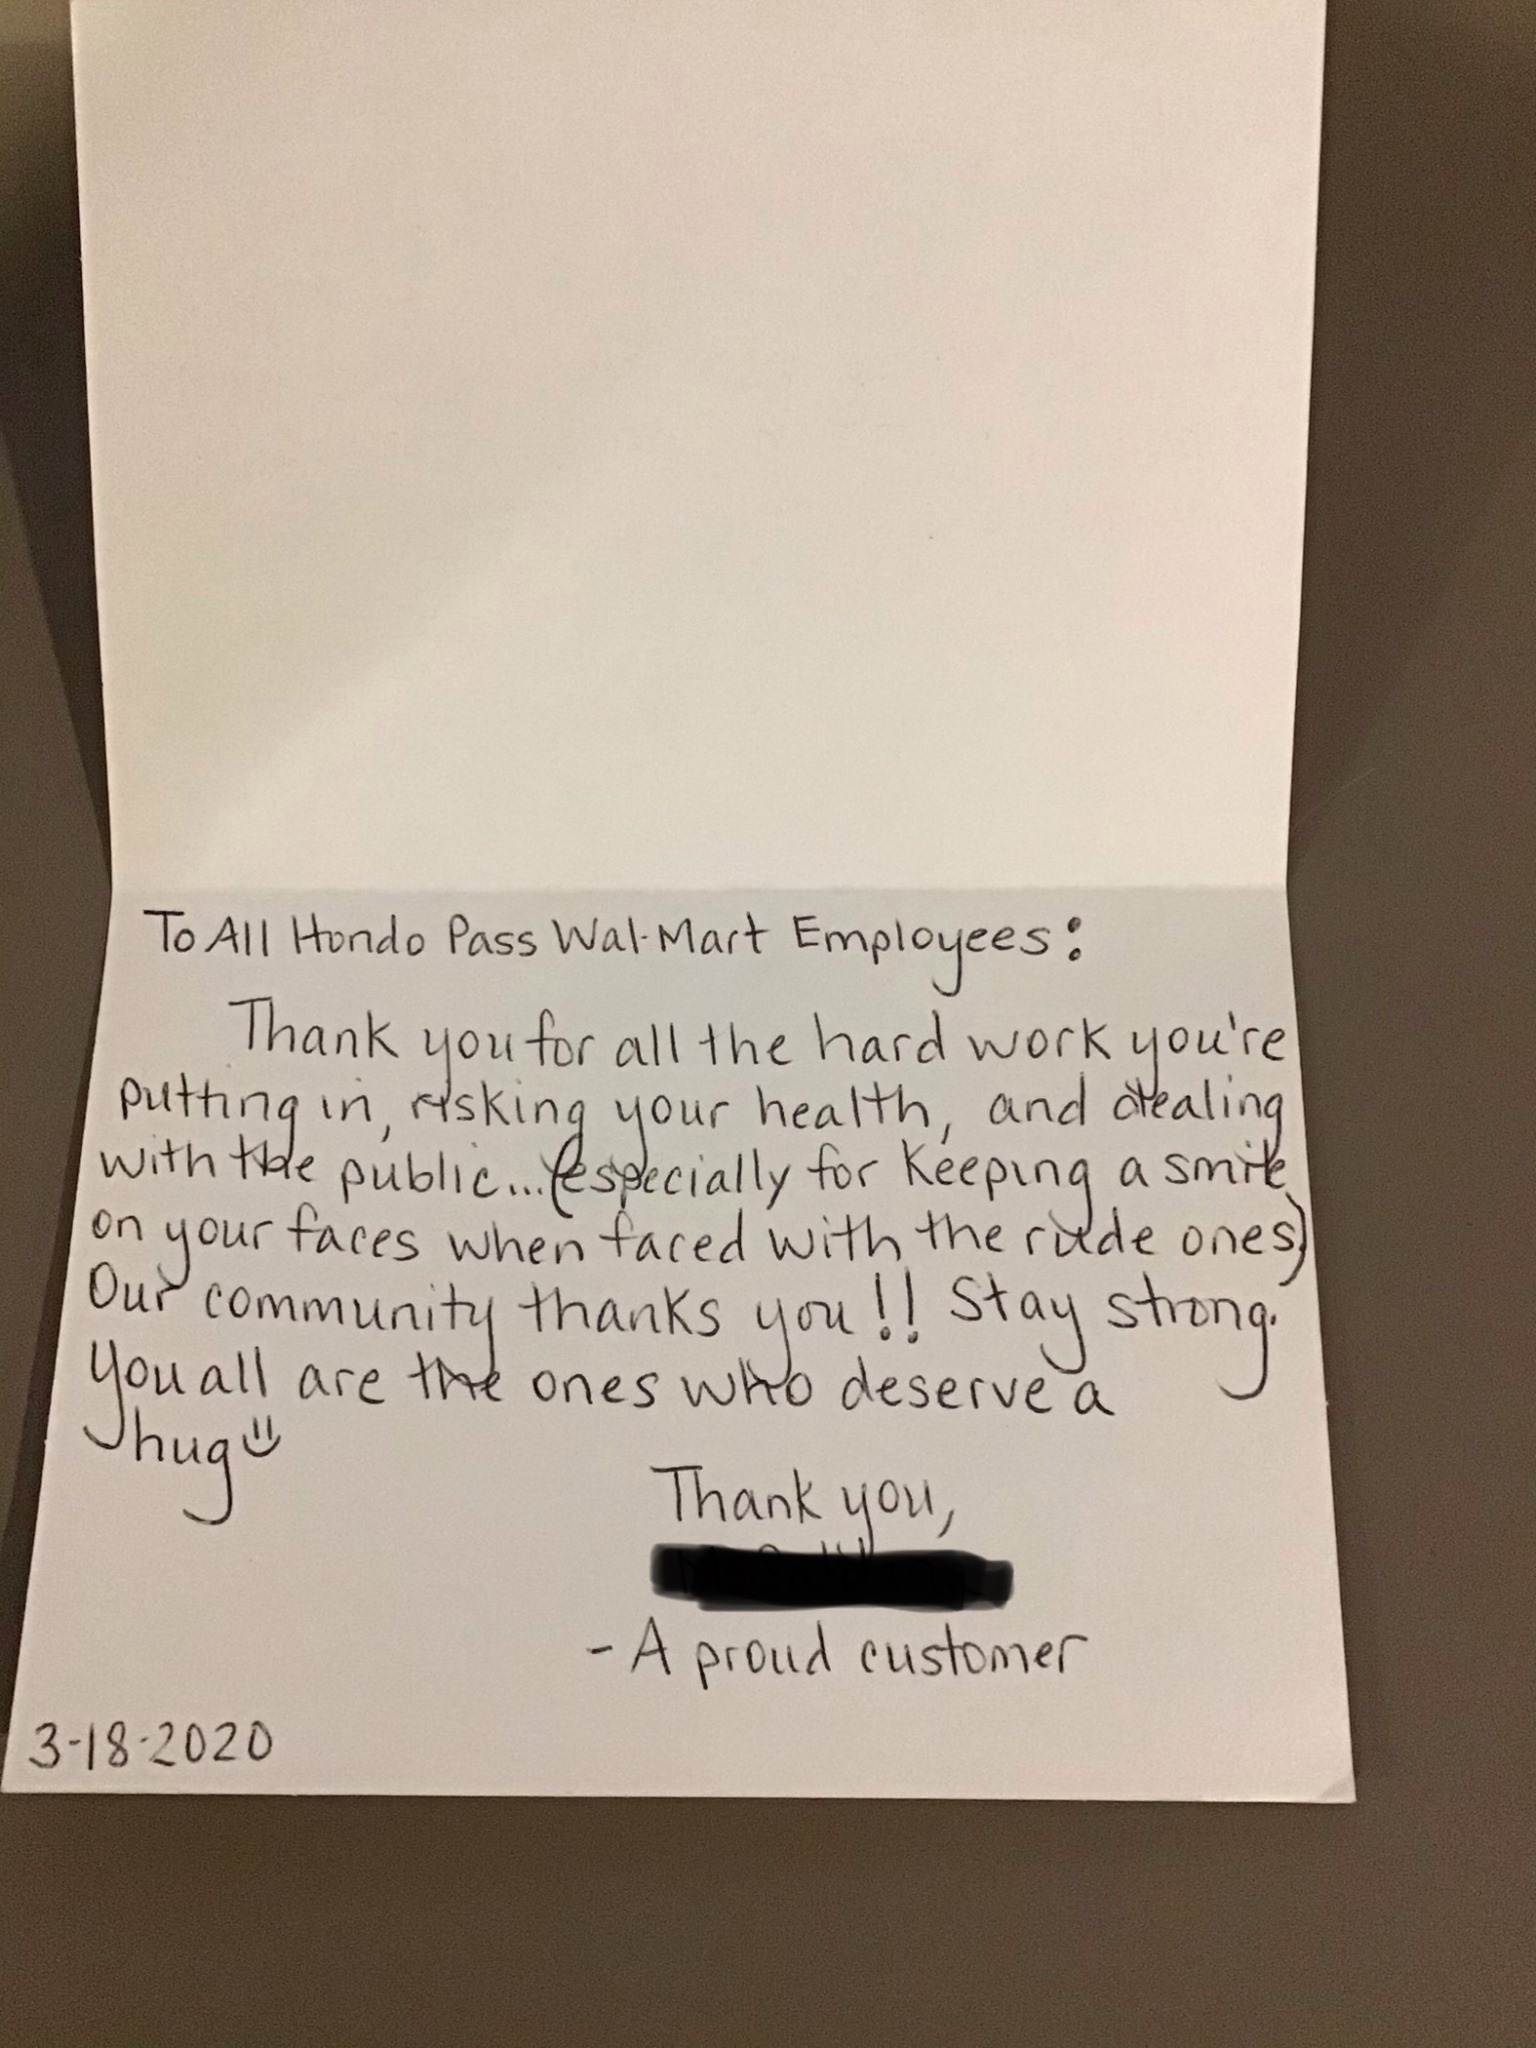 To All Hondo Pass Wal-Mart Employees:
Thank you for all the hard work you're
putting in, risking your health, and dealing
with the public... (especially for keeping a smile
on your faces when faced with the rude ones)
Our community thanks you!! Stay strong.
You all are the ones who deserve a
hug
Thank you,
- A proud customer
3-18-2020